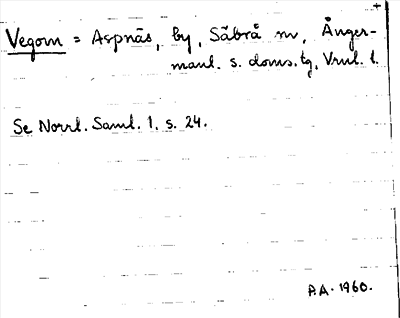 +
Vegom = Aspnäs, by, Säbrå sn, Ånger-
manl. s. doms.tg, Vnl. l.
Se Norrl. Saml. 1. s. 24.
P.A. 1960.